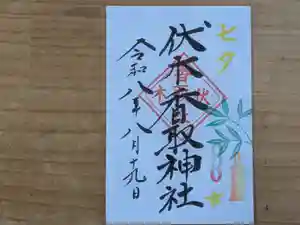 七夕
伏木香取神社
令和八年八月十九日